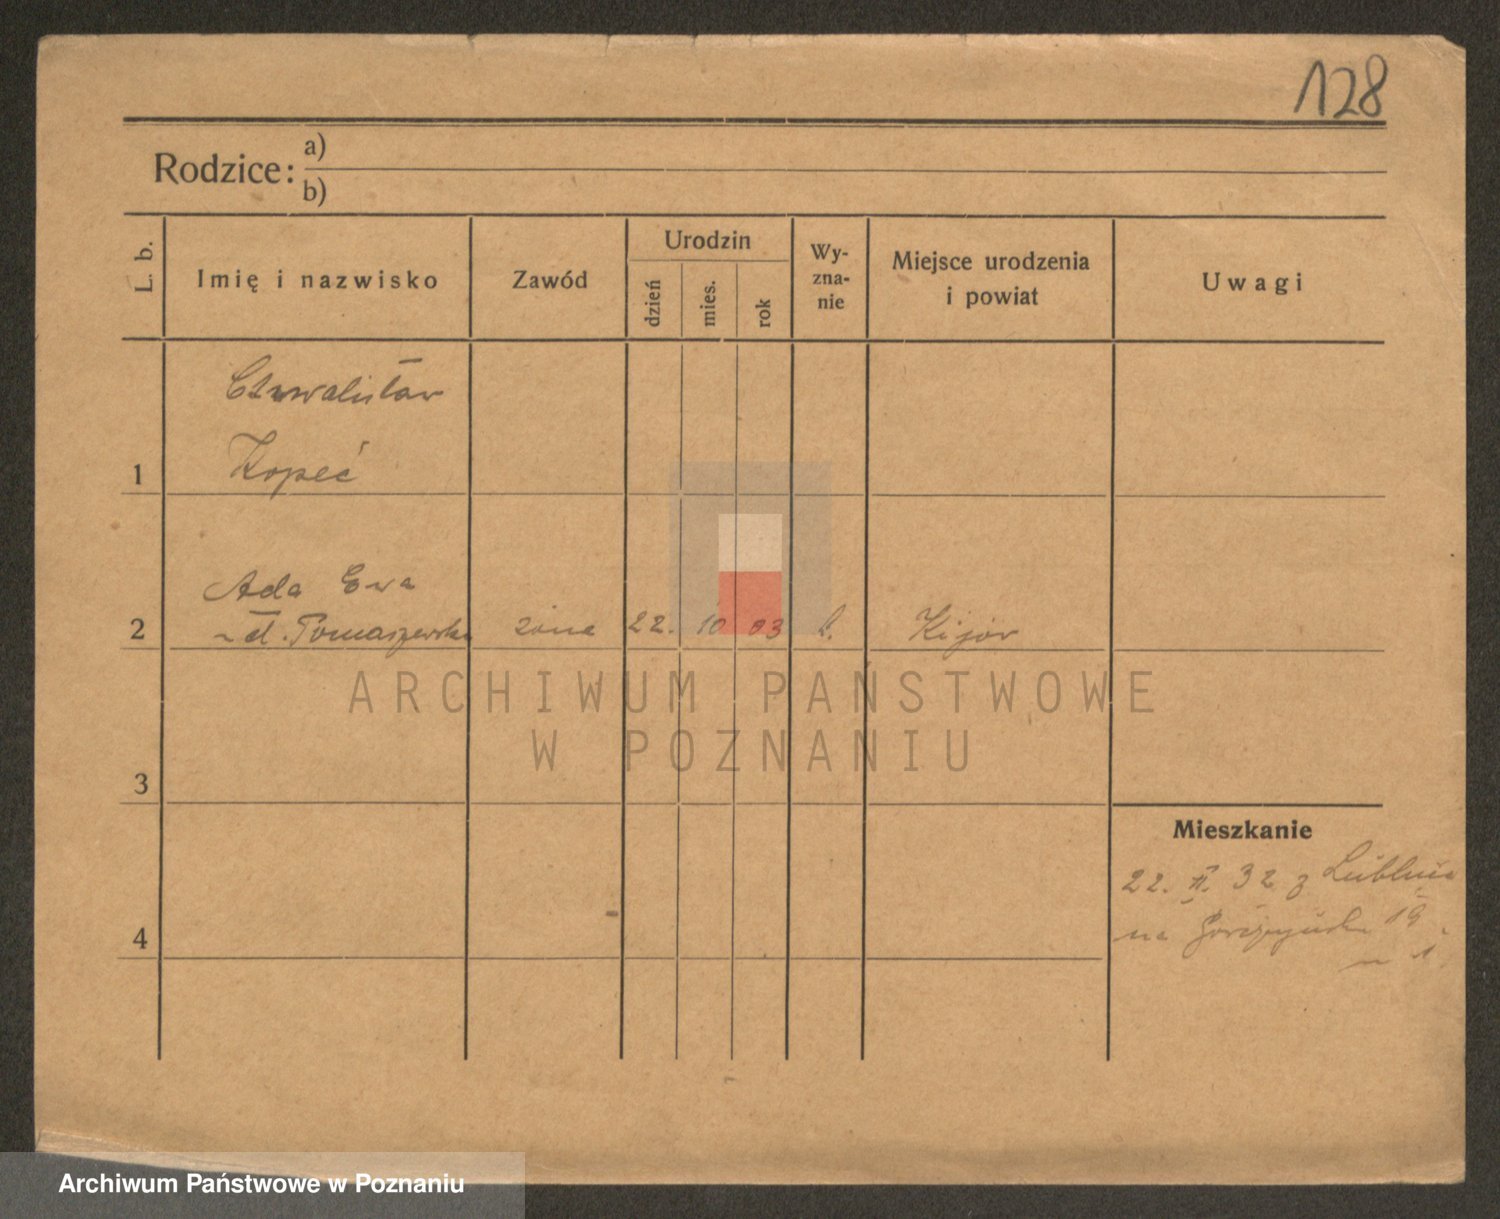 128
Rodzice: a)
b)
L. b. Imię i nazwisko Zawód Urodzin dzień mies. rok Wy-zna-nie Miejsce urodzenia i powiat Uwagi
Kopeć
1
Ada Ewa
2 Tomaszewska żona 22. 10 03 Kijów
ARCHIWUM PAŃSTWOWE
W POZNANIU
3
Mieszkanie
22. 32 z Lublina
4 na 19
1.
Archiwum Państwowe w Poznaniu